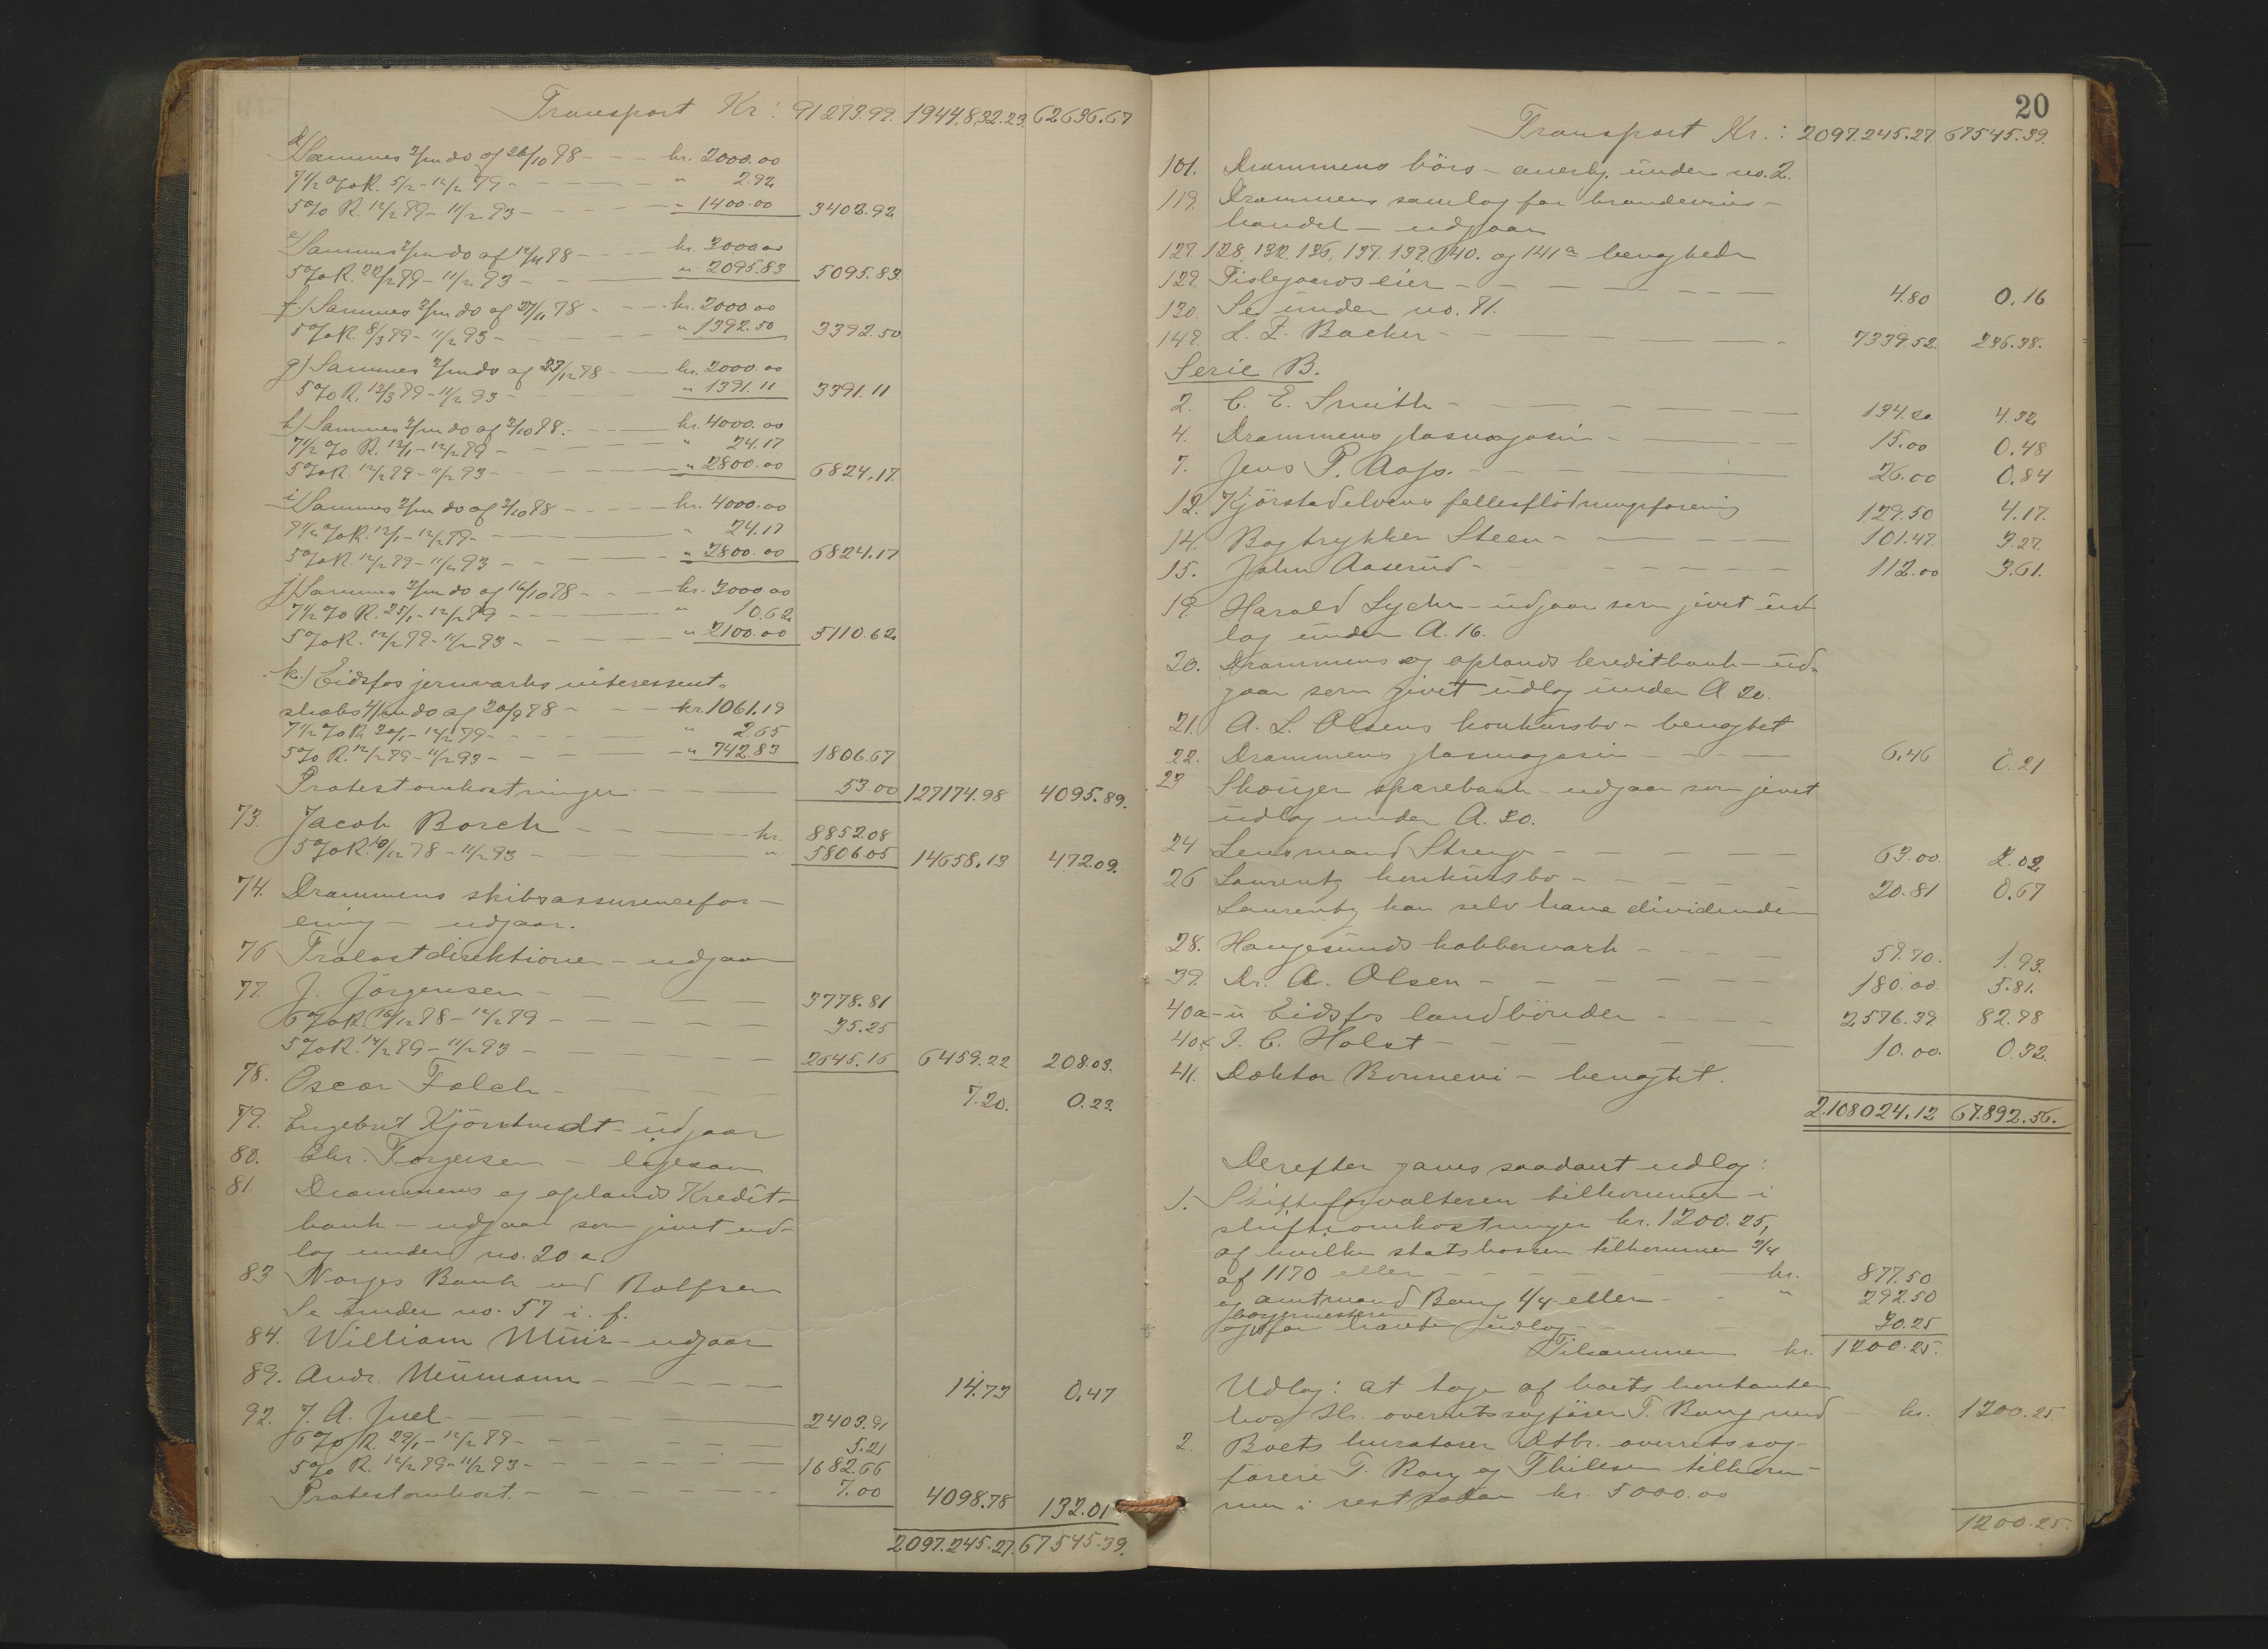 Transport Kr: 91273.99. 1944.832.23. 62636.67
d) Sammes 3/m do af 26/10 78 - - - kr. 2000.00
7 1/2 % R. 5/2 - 12/2 79 - - - - " 2.92
5 % R. 12/2 79 - 11/2 93 - - - - " 1400.00 3402.92
e) Sammes 3/m do af 12/11 78 - - kr. 3000.00
5 % R. 22/2 79 - 11/2 93 - - - " 2095.83 5095.83
f) Sammes 3/m do af 27/11 78 - - - kr. 2000.00
5 % R. 8/3 79 - 11/2 93 - - - " 1392.50 3392.50
g) Sammes 3/m do af 23/12 78 - - kr. 2000.00
5 % R. 13/3 79 - 11/2 93 - - - " 1391.11 3391.11
h) Sammes 3/m do af 2/10 78. - - - kr. 4000.00
7 1/2 % R. 12/1 - 12/2 79 - - - " 24.17
5 % R. 12/2 79 - 11/2 93 - - - - " 2800.00 6824.17
i) Sammes 3/m do af 2/10 78 - - - - kr. 4000.00
7 1/2 % R. 12/1 - 12/2 79 - - - " 24.17
5 % R. 12/2 79 - 11/2 93 - - - " 2800.00 6824.17
j) Sammes 3/m do af 16/10 78 - - - kr. 3000.00
7 1/2 % R. 25/1 - 12/2 79 - - - " 10.62
5 % R. 12/2 79 - 11/2 93 - - - " 2100.00 5110.62
k.) Eidsfos jernværks interessent-
skabs 4/m do af 20/9 78 - - - kr. 1061.19
7 1/2 % R. 30/1 - 12/2 79 - - - " 2.65
5 % R. 12/2 79 - 11/2 93 - - - " 742.83 1806.67
Protestomkostninger - - 53.00 127174.98 4095.89.
73. Jacob Borch - - - kr. 8852.08
5 % R. 30/12 78 - 11/2 93 - - " 5806.05 14658.13 472.09.
74. Drammens skibsassurancefor-
ening - udgaar.
76 Trælastdirektionen - udgaar
77. J. Jörgensen - - - 3778.81
6 % R. 16/12 78 - 12/2 79 - - - 35.25
5 % R. 12/2 79 - 11/2 93 - - - 2645.16 6459.22 208.03.
78. Oscar Falch - - 7.20. 0.23.
79. Engebret Kjörstvedt - udgaar
80. Chr. Torgersen - ligesom
81. Drammens og oplands Kredit-
bank - udgaar som givet ud-
læg under no. 20 a.
83 Norges Bank ved Rolfsen
Se under no. 57 i. f.
84. William Muir - udgaar
89. Andr. Neumann - - - 14.73 0.47
92. J. A. Juel - - - 2403.91
6 % R. 29/1 - 12/2 79 - - - 5.21
5 % R. 12/2 79 - 11/2 93 - - - 1682.66
Protestomkost. - - - 7.00 4098.78 132.01
2097.245.27. 67545.39.
20
Transport Kr.: 2097.245.27. 67545.39.
101. Drammens börs - anerkj. under no. 2.
119. Drammens samlag for brændevins-
handel - udgaar
127. 128, 132, 136, 137. 139. 140. og 141a benægtede
129. Fislegaards eier - - - 4.80 0.16
130. Se under no. 71.
149. L. F. Backer - - - 7339.52. 236.38.
Serie B.
2. C. E. Smith - - - 134.20 4.32
4. Drammens glasmagasin - - - 15.00 0.48
7. Jens P. Aass. - - - 26.00 0.84
12. Kjörstadelvens fellesflödningsforening 129.50 4.17.
14. Bogtrykker Steen - - - 101.47. 3.27.
15. John Aaserud - - - 112.00 3.61.
19. Harald Lyche - udgaar som givet ud-
læg under A. 16.
20. Drammens og oplands kreditbank - ud-
gaar som givet udlæg under A. 20.
21. A. L. Olsens konkursbo - benægtet
22. Drammens glasmagasin - - - 6.46 0.21
23 Skouger sparebank - udgaar som givet
udlæg under A. 30.
24 Lensmand Strøm - - - 63.00. 2.02
26 Laurentz konkursbo - - - 20.81 0.67
Laurentz kan selv hæve dividenden
28. Haugesunds kobberværk - - - 59.70. 1.93.
39. Dr. A. Olsen - - - 180.00. 5.81.
40a-u Eidsfos landbönder - - - 2576.39. 82.98
40x J. C. Holst - - - 10.00. 0.32.
41. Doktor Bonnevi - benægtet.
2.108024.12 67.892.56.
Derefter gaves saadant udlæg:
1. Skifteforvalteren tilkommer i
skifteomkostninger kr. 1200.25,
af hvilke statskassen tilkommer 3/4
af 1170 eller - - - kr. 877.50
og amtmand Bang 1/4 eller - - " 292.50
borgermesteren
og for havte udlæg - - 30.25
Tilsammen kr. 1200.25.
Udlæg: at tage af boets kontanter
hos Hr. overretssagförer T. Bang med kr. 1200.25.
2. Boets kuratorer Dhrr. overretssag-
förere T. Bang og Thilesen tilkom-
mer i rest salær kr. 5000.00
1200.25.